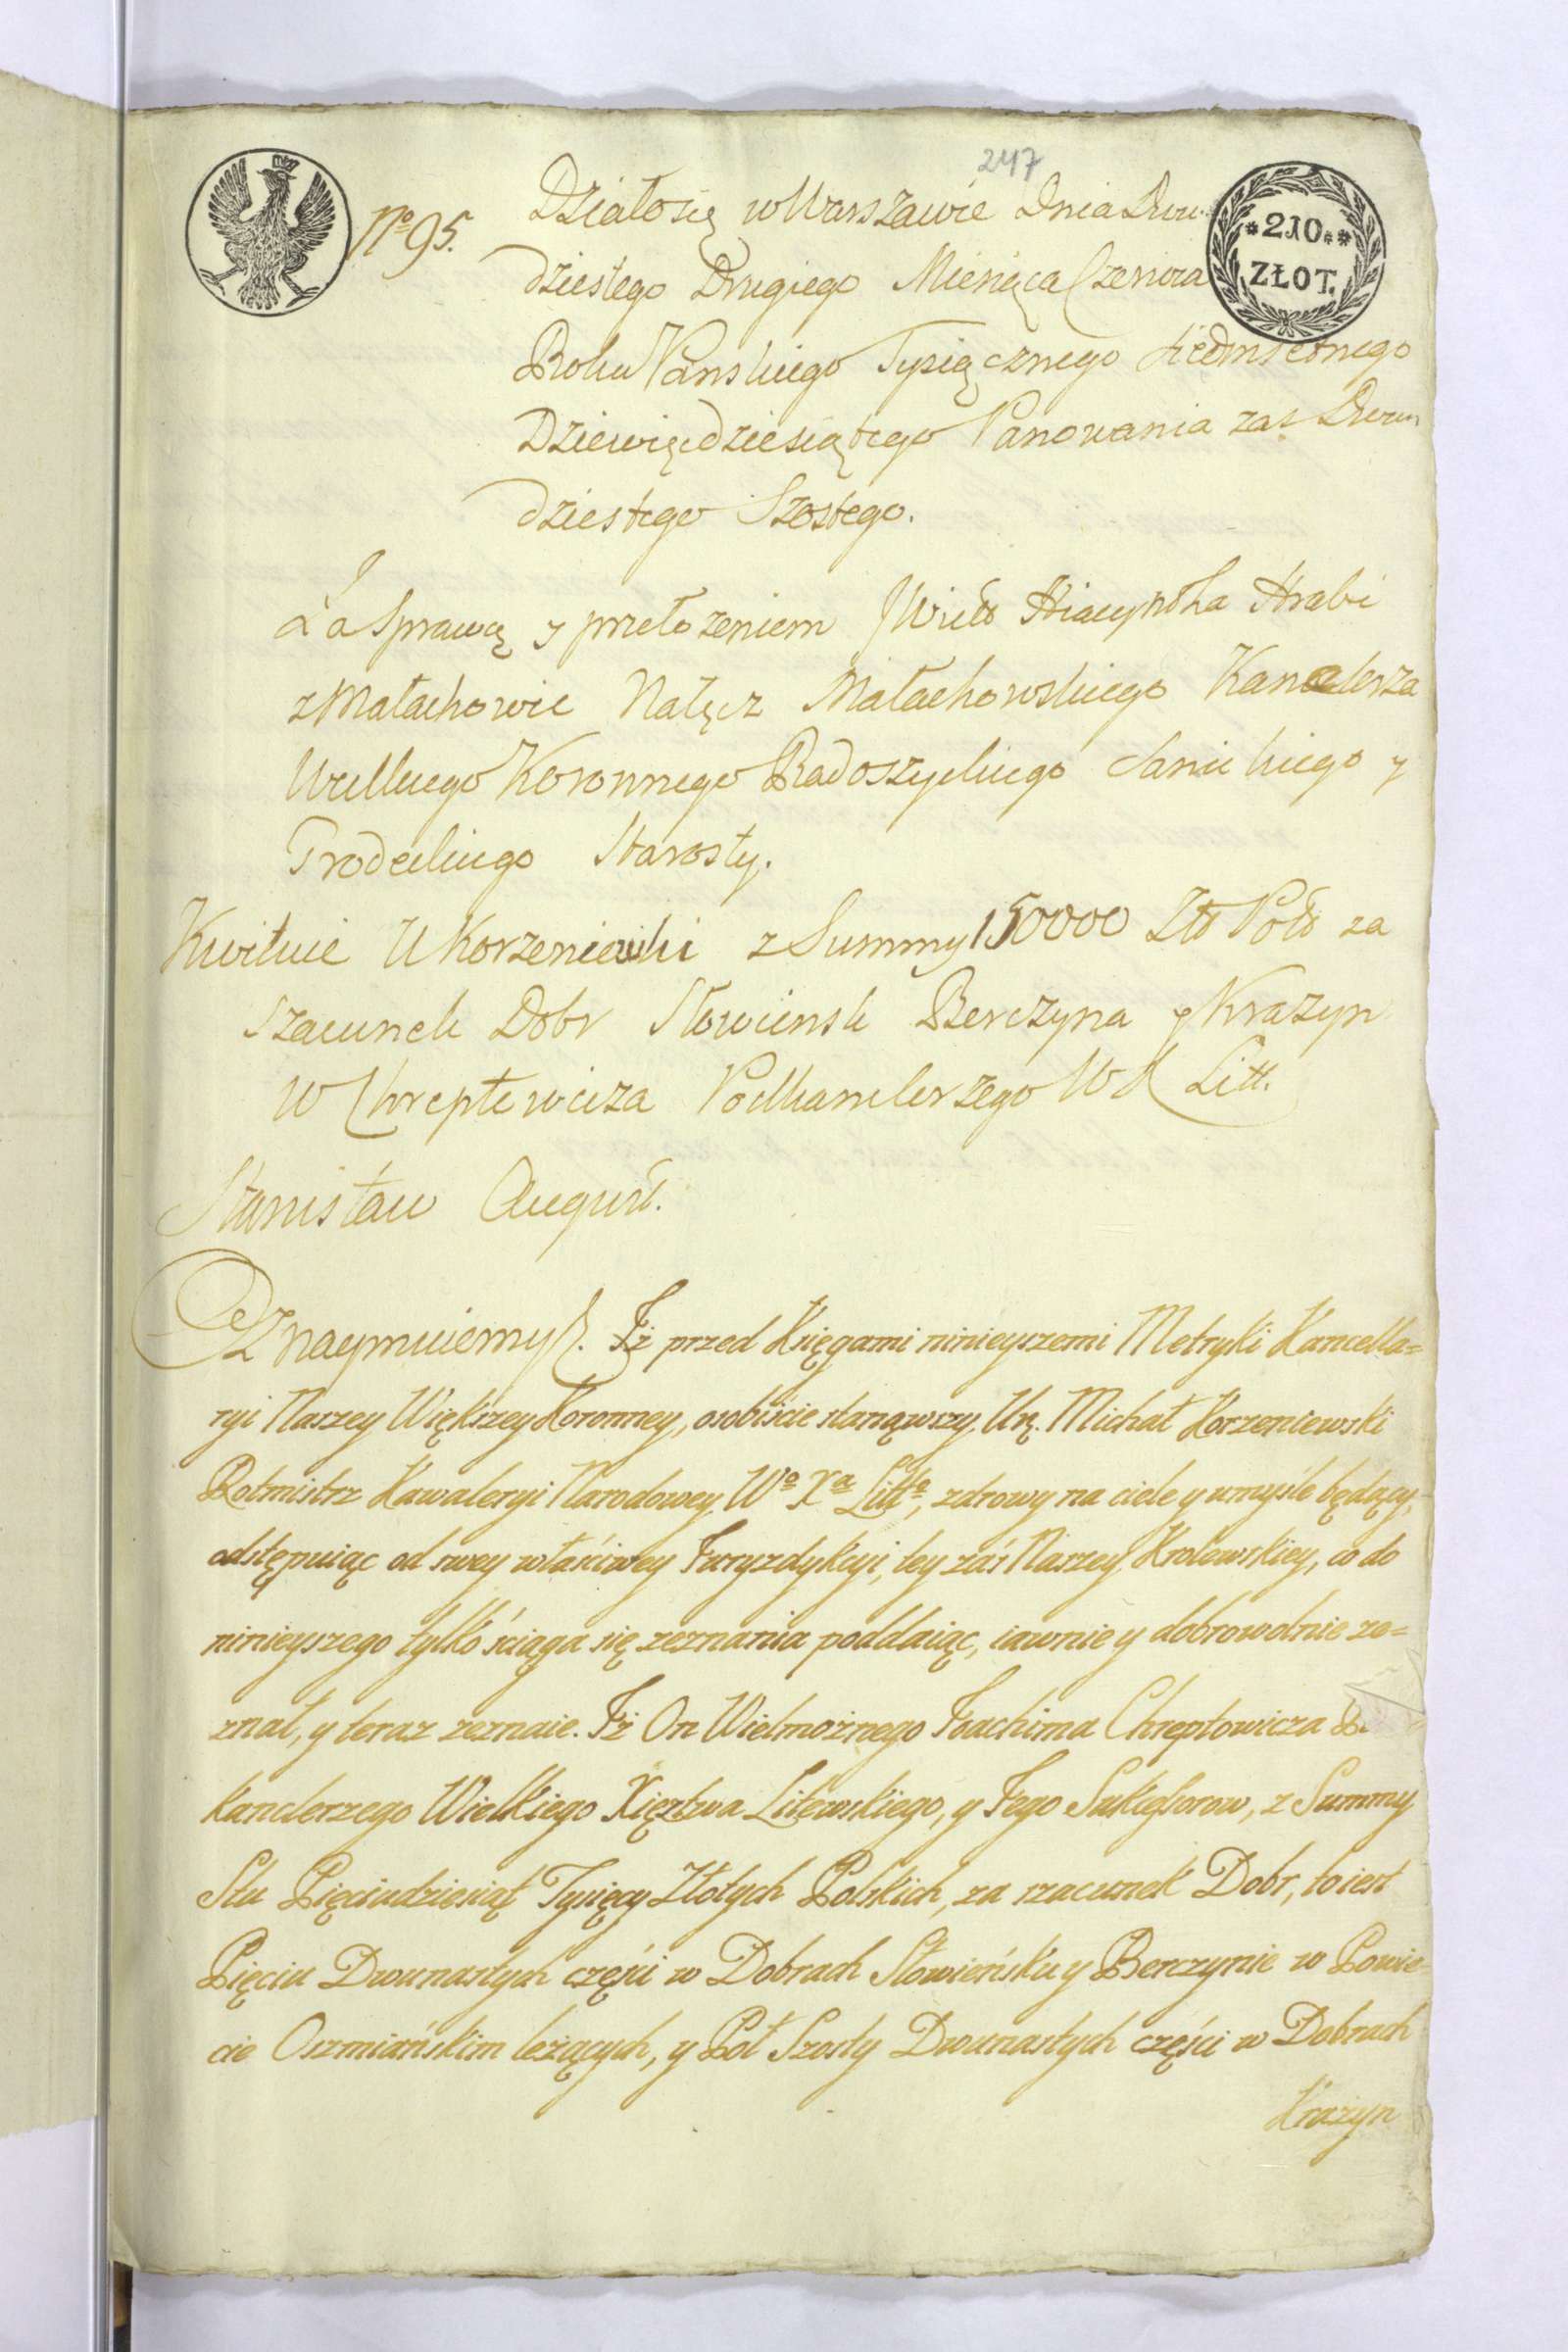 247
No 95.
*210.*
ZŁOT.
Działosię w Warszawie Dnia Dwu
dziestego Drugiego Miesiąca Czerwca
Roku Panskiego Tysiącznego siedmsetnego
Dziewięcdziesiątego Panowania zas Dwu
dziestego Szostego.
Za Sprawą y przełozeniem JWielo Hiacyntha Hrabi
z Małachowic Nałęcz Małachowskiego Kanclerza
Wielkiego Koronnego Radoszyckiego Sanickiego y
Grodeckiego Starosty.
Kwituie U Korzeniewski z Summy 150000 Zło Polo za
Szacunek Dobr Słowiensk Berczyna y Krazyn
W Chreptowicza Podkanclerzego W X Litt.
Stanisław August.
Oznaymuiemy. Iż przed Księgami ninieyszemi Metryki Kancella=
ryi Naszey Większey Koronney, osobiście stanąwszy Ur. Michał Korzeniewski
Rotmistrz Kawaleryi Narodowey Wo Xa Litto, zdrowy na ciele y umyśle będący,
odstępuiąc od swey właściwey Juryzdykcyi, tey zaś Naszey Krolewskiey, co do
ninieyszego tylko ściąga się zeznania poddaiąc, iawnie y dobrowolnie ze=
znał, y teraz zeznaie. Iż On Wielmożnego Joachima Chreptowicza
kanclerzego Wielkiego Xięztwa Litewskiego, y Jego Sukcessorow, z Summy
Stu Pięciudziesiąt Tysięcy Złotych Polskich, za szacunek Dobr, to iest
Pięciu Dwunastych części w Dobrach Słowieńsku y Berczynie w Powie=
cie Oszmiańskim leżących, y Poł Szosty Dwunastych części w Dobrach
Krazyn